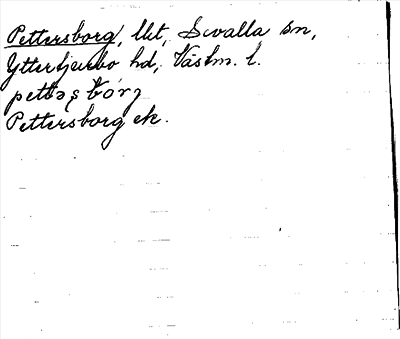 Pettersborg, lkt, Sevalla sn,
Yttertjurbo hd, Västm. l.
pettəʂbórj
Pettersborg ek.